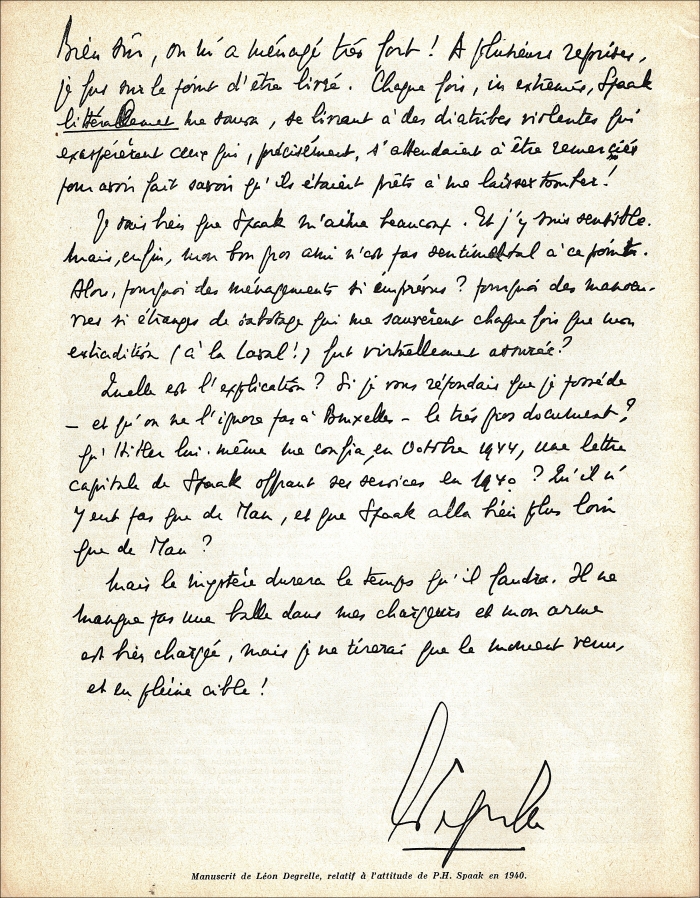 Bien sûr, on m'a ménagé très fort ! A plusieurs reprises,
je fus sur le point d'être livré. Chaque fois, in extremis, Spaak
littéralement me sauva, se livrant à des diatribes violentes qui
exaspérèrent ceux qui, précisément, s'attendaient à être remerciés
pour avoir fait savoir qu'ils étaient prêts à me laisser tomber !
Je sais bien que Spaak m'aime beaucoup. Et j'y suis sensible.
Mais, enfin, mon bon gros ami n'est pas sentimental à ce point.
Alors, pourquoi des ménagements si imprévus ? pourquoi des manoeu-
vres si étranges de sabotage qui me sauvèrent chaque fois que mon
extradition (à la Laval !) fut virtuellement assurée ?
Quelle est l'explication ? Si je vous répondais que je possède
– et qu'on ne l'ignore pas à Bruxelles – le très gros document ?
qu'Hitler lui-même me confia en Octobre 1944, une lettre
capitale de Spaak offrant ses services en 1940 ? Qu'il n'
y eut pas que de Man, et que Spaak alla bien plus loin
que de Man ?
Mais le mystère durera le temps qu'il faudra. Il ne
manque pas une balle dans mes chargeurs et mon arme
est bien chargée, mais je ne tirerai que le moment venu,
et en pleine cible !
Degrelle
Manuscrit de Léon Degrelle, relatif à l'attitude de P.H. Spaak en 1940.